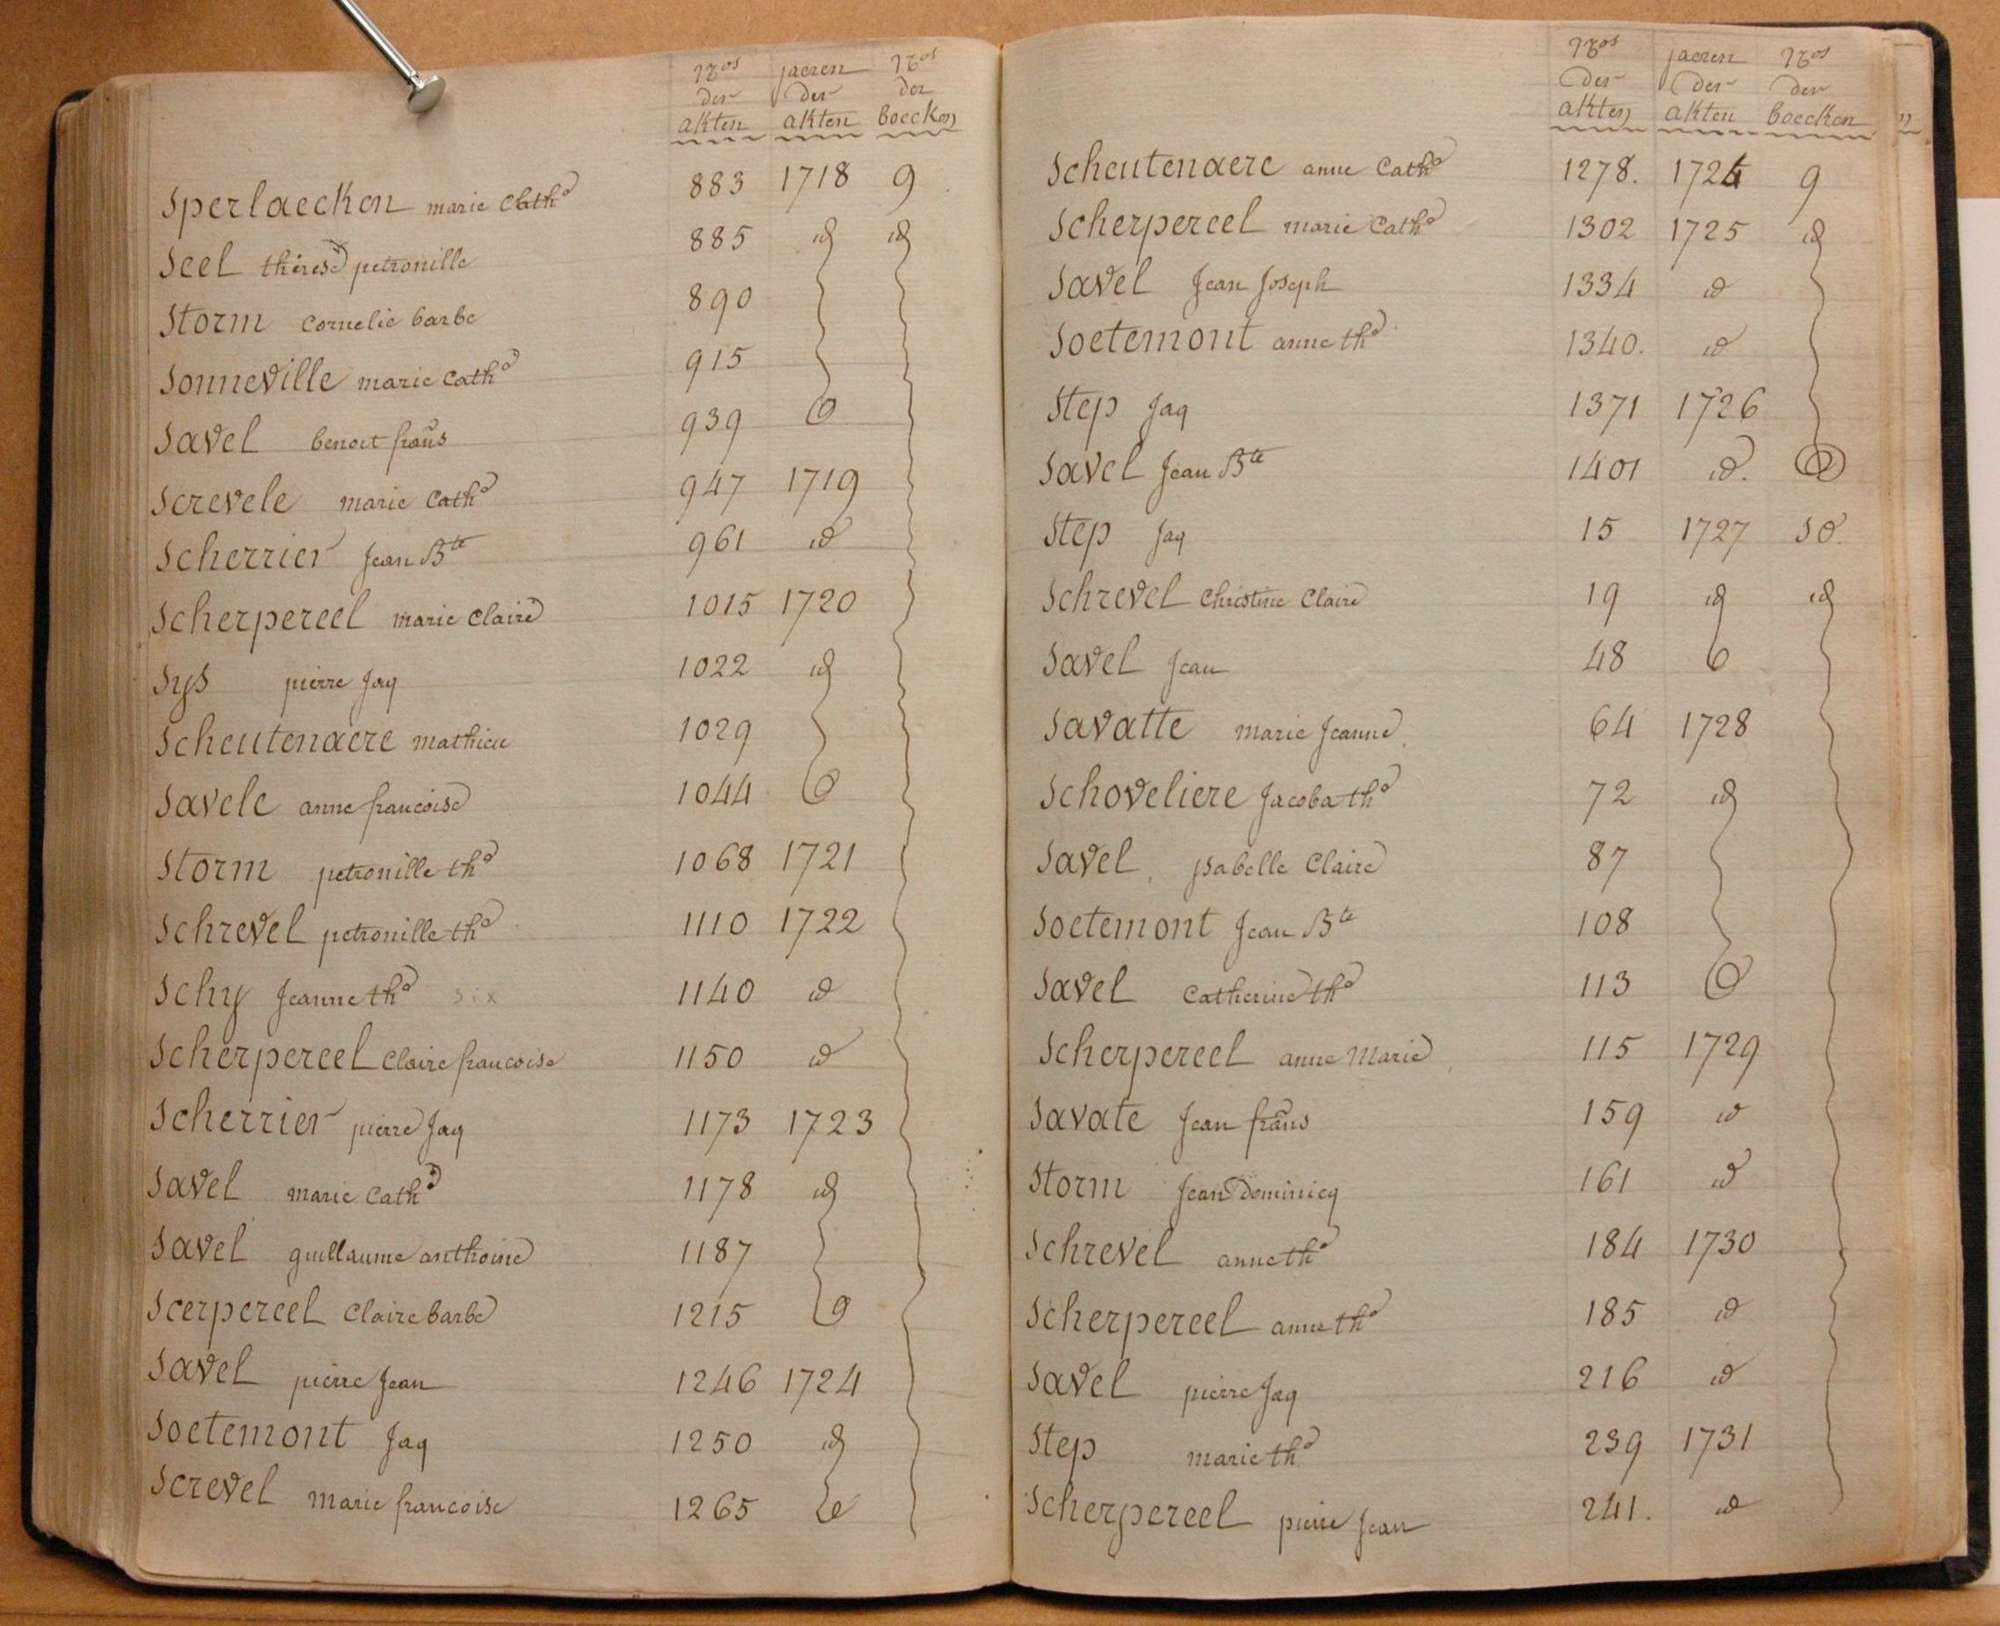 Nros jaeren Nros
der der der
akten akten boecken
Sperlaecken marie Cathe 883 1718 9
Seel thérese petronille 885 id id
Storm cornelie barbe 890
Sonneville marie Cathe 915
Savel benoit frans 939
Screvele marie Cathe 947 1719
Scherrier Jean Bte 961 id
Scherpereel marie Claire 1015 1720
Sys pierre Jaq 1022 id
Scheutenaere mathieu 1029
Savele anne francoise 1044
Storm petronille the 1068 1721
Schrevel petronille the 1110 1722
Schy Jeanne the six 1140 id
Scherpereel Claire francoise 1150 id
Scherrier pierre Jaq 1173 1723
Savel marie Cathe 1178 id
Savel guillaume anthoine 1187
Scerpereel Claire barbe 1215
Savel pierre Jean 1246 1724
Soetemont Jaq 1250 id
Screvel marie francoise 1265
Nros jaeren Nros
der der der
akten akten boecken
Scheutenaere anne Cathe 1278. 1724 9
Scherpereel marie Cathe 1302 1725 id
Savel Jean Joseph 1334 id
Soetemont anne the 1340. id
Step Jaq 1371 1726
Savel Jean Bte 1401 id.
Step Jaq 15 1727 10.
Schrevel Christine Claire 19 id id
Savel Jean 48
Savatte marie Jeanne 64 1728
Schoveliere Jacoba the 72 id
Savel ysabelle Claire 87
Soetemont Jean Bte 108
Savel Catherine the 113
Scherpereel anne Marie 115 1729
Savate Jean frans 159 id
Storm Jean Dominicq 161 id
Schrevel anne the 184 1730
Scherpereel anne the 185 id
Savel pierre Jaq 216 id
Step marie the 239 1731
Scherpereel pierre Jean 241. id